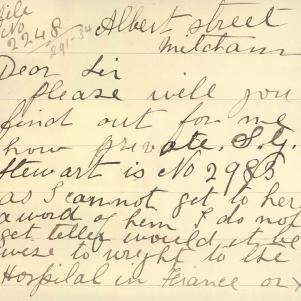 File
No
2248
291-34
Albert street
Mitcham
Dear Sir
Please will you
find out for me
how private. S.G.
Stewart is No 2983
as I cannot get to here
a word of hem I do not
get letter would it be
wise to wright to the
Hospital in France or